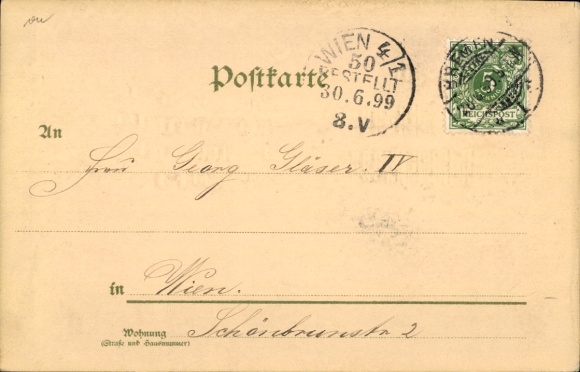 WIEN 4/1
50
BESTELLT
30.6.99
8.V
BREMEN
5
REICHSPOST
Postkarte
An
Herrn Georg Gläser IV
in Wien.
Wohnung Schönbrunnstr 2
(Straße und Hausnummer)